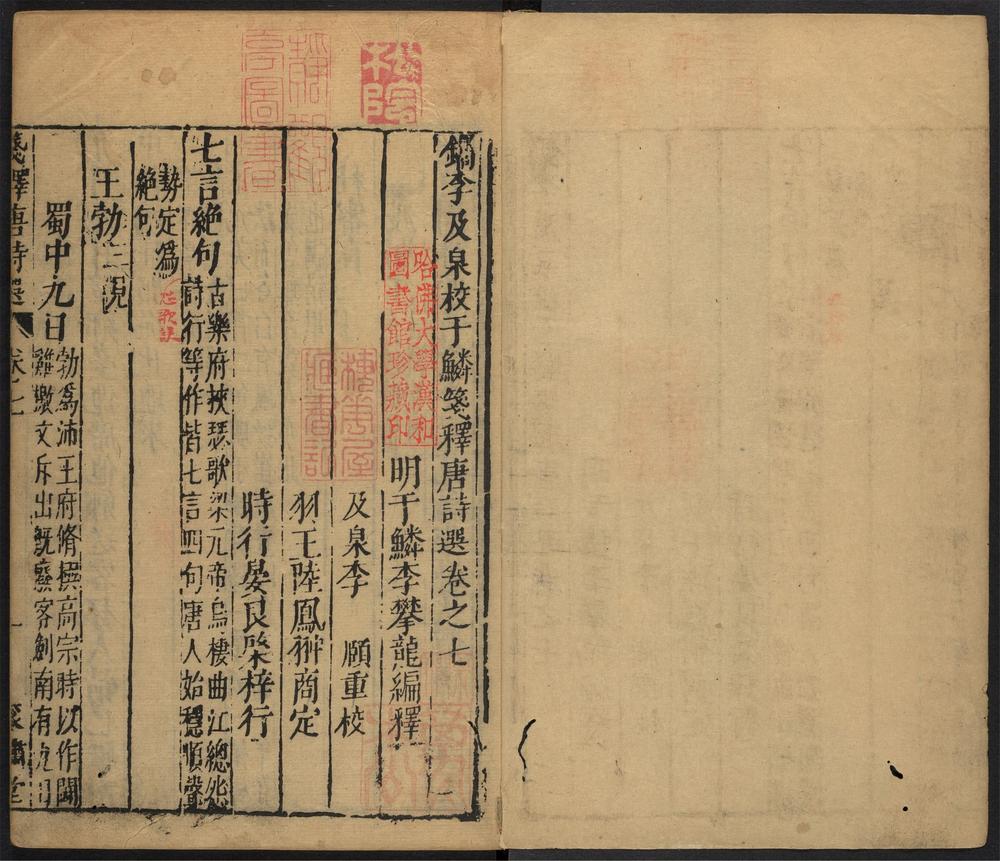 鐫李及泉校于鱗箋釋唐詩選卷之七
明于鱗李攀龍編釋
及泉李 頤重校
羽王陸鳳翀商定
時行晏良棨梓行
七言絶句
古樂府挾瑟歌梁元帝烏棲曲江總怨
詩行等作皆七言四句唐人始穩順聲
勢定爲
絶句
王勃
蜀中九日
勃爲沛王府脩撰高宗時以作鬪
雞檄文斥出既廢客劍南有九日
箋釋唐詩選
卷之七
一
哈佛大學漢和
圖書館珍藏印